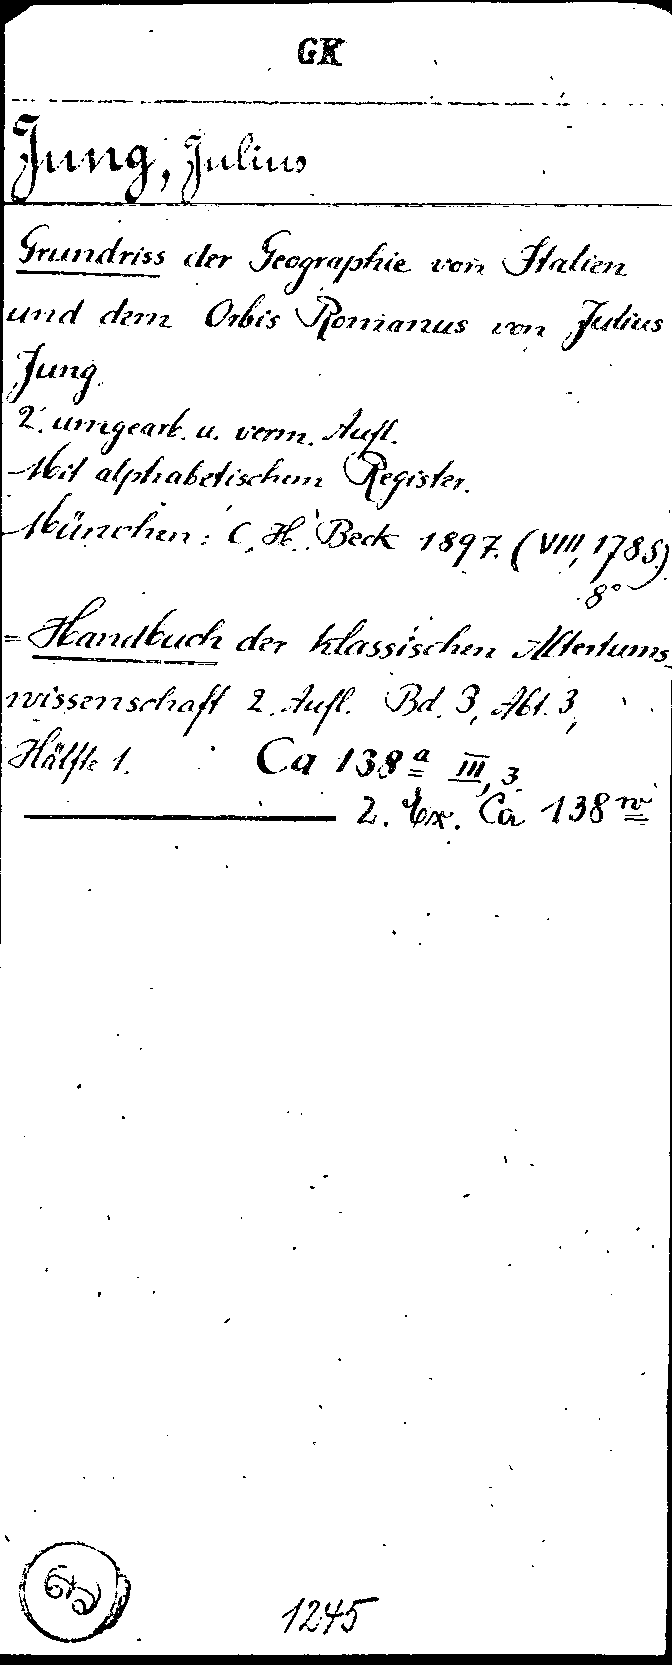 GK
Jung, Julius
Grundriss der Geographie von Italien
und dem Orbis Romanus von Julius
Jung.
2. umgearb. u. verm. Aufl.
Mit alphabetischem Register.
München: C. H. Beck 1897. (VIII, 178 S.)
8°
= Handbuch der klassischen Altertums-
wissenschaft 2. Aufl. Bd. 3, Abt. 3,
Hälfte 1. Ca 138 a III, 3.
2. Ex. Ca 138
1245